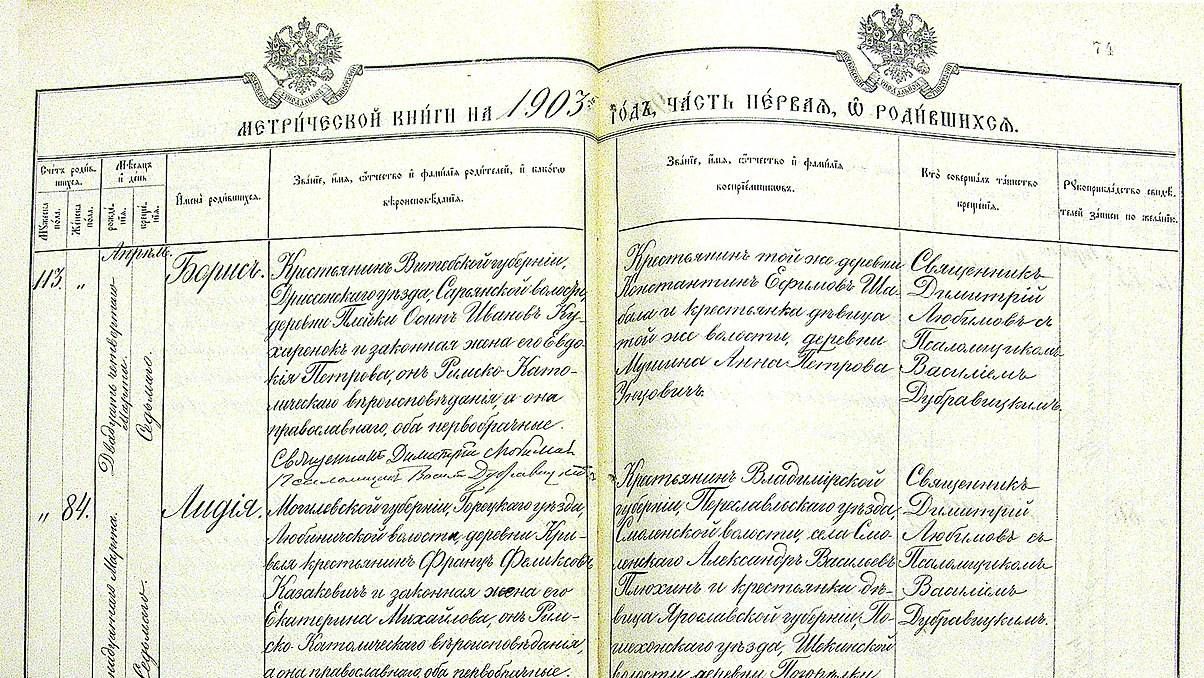 74
МЕТРИ́ЧЕСКОЙ КНИ́ГИ НА 1903й ГО́ДЪ, ЧА́СТЬ ПЕ́РВАЯ, Ѽ РОДИ́ВШИХСѦ.
Сче́тъ роди́в-
шихсѧ.
Мꙋ́жеска по́ла.
Же́нска по́ла.
Мѣ́сѧцъ
и҆ день
рожде́-
нїѧ.
креще́-
нїѧ.
И҆мена̀ роди́вшихсѧ.
Зва́нїе, и҆́мѧ, ѻ҆́тчество и҆ фами́лїѧ роди́телей, и҆ како́гѡ
вѣроисповѣ́данїѧ.
Зва́нїе, и҆́мѧ, ѻ҆́тчество и҆ фами́лїѧ
воспрїе́мникѡвъ.
Кто̀ соверша́лъ та́инство
креще́нїѧ.
Рꙋкоприкла́дство свидѣ́-
телей за́писи по жела́нїю.
Апрѣль.
113.
„
Двадцать четвертаго
Марта.
Седьмаго.
Борисъ.
Крестьянинъ Витебской губерніи,
Дриссенскаго уѣзда, Сарьянской волости,
деревни Плейки Осипъ Ивановъ Ку-
харонокъ и законная жена его Евдо-
кія Петрова, онъ Римско-Като-
лическаго вѣроисповѣданія а она
православнаго, оба первобрачные.
Священникъ Димитрій Любимовъ
Псаломщикъ Васил Дубравицкій
Крестьянинъ той же деревни
Константинъ Ефимовъ Ша-
бала и крестьянка дѣвица
той же волости, деревни
Анна Петрова
Священникъ
Димитрій
Любимовъ съ
Псаломщикомъ
Василіемъ
Дубравицкимъ.
„
84.
Марта.
Седьмаго
Лидія.
Могилевской губерніи, Горецкаго уѣзда,
Любиничской волости, деревни Кри-
веля крестьянинъ Францъ Феликсовъ
Казакевичъ и законная жена его
Екатерина Михайлова, онъ Рим-
ско-Католическаго вѣроисповѣданія,
а она православнаго, оба первобрачные.
Крестьянинъ Владимірской
губерніи, Переславльскаго уѣзда,
Смоленской волости, села Смо-
ленскаго Александръ Васильевъ
Плюхинъ и крестьянка дѣ-
вица Ярославской губерніи, По-
шехонскаго уѣзда, Щекинской
волости деревни Погорѣлки
Священникъ
Димитрій
Любимовъ съ
Псаломщикомъ
Василіемъ
Дубравицкимъ.